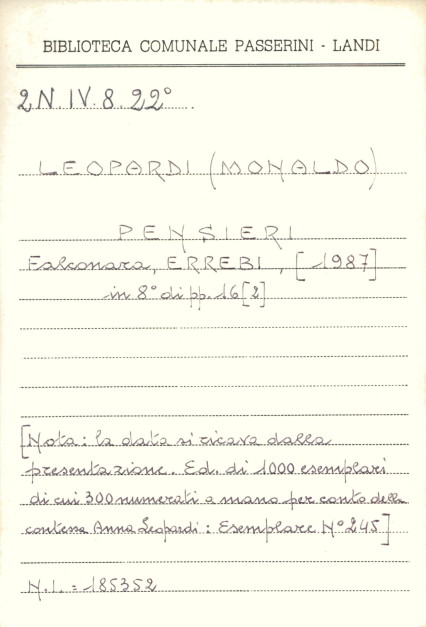 BIBLIOTECA COMUNALE PASSERINI - LANDI
2N.IV.8.22°
LEOPARDI (MONALDO)
PENSIERI
Falconara, ERREBI, [1987]
in 8° di pp. 16[2]
[Nota: la data si ricava dalla
presentazione. Ed. di 1000 esemplari
di cui 300 numerati a mano per conto della
contessa Anna Leopardi: Esemplare N° 245]
N.I. = 185352